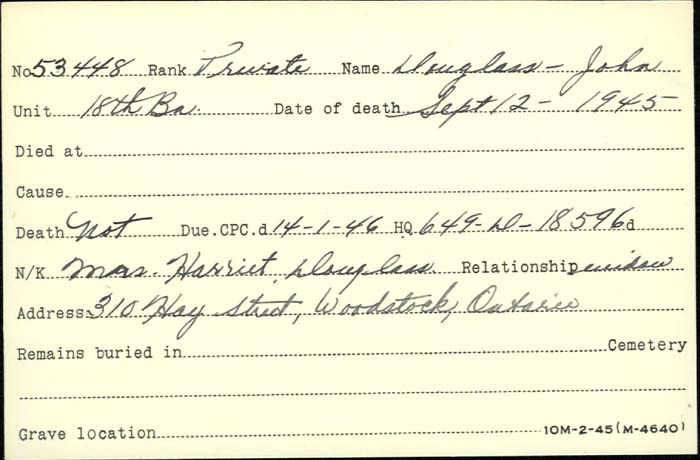 No 53448 Rank Private Name Douglass - John
Unit 18th Bn. Date of death Sept 12 - 1945
Died at
Cause
Death Not Due. CPC.d 14-1-46 HQ 649-D-18596 d
N/K Mrs. Harriet Douglass Relationship widow
Address: 310 Hay Street, Woodstock, Ontario
Remains buried in Cemetery
Grave location 10M-2-45 (M-4640)